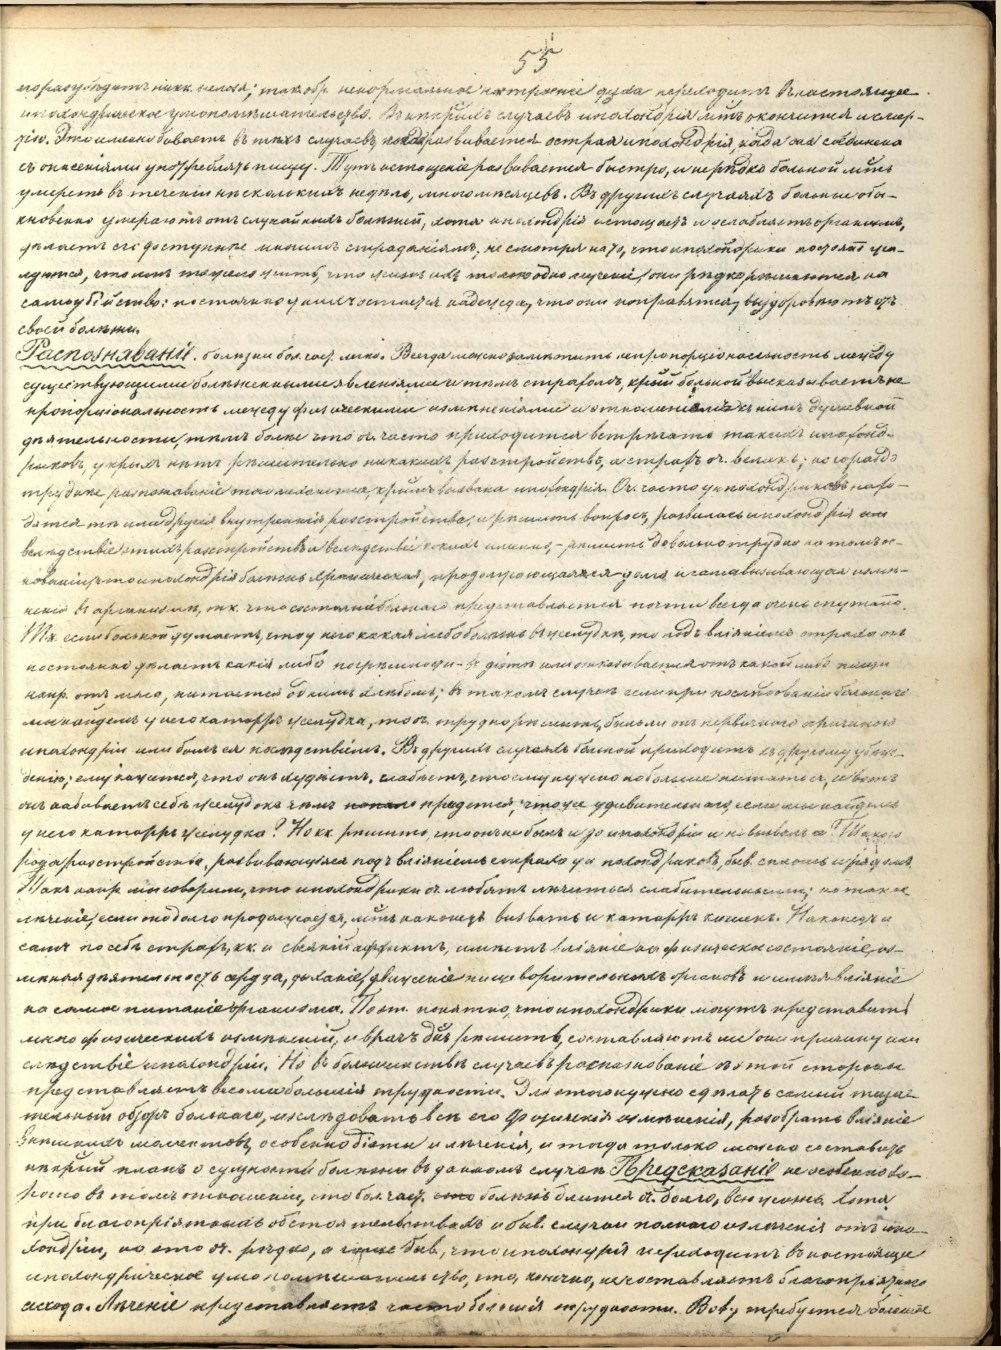 55
его разубѣдить никк. нельзя; так. обр. ненормальное настроніе духа переходитъ въ настоящее
ипохондрическое умопомѣшательство. Въ нѣкрыхъ случаяхъ ипохондрія мжтъ окончиться и смер-
тію. Это именно бываетъ въ тѣхъ случаяхъ, когда развивается острая ипохондрія, когда она соединена
съ опасеніями употреблять пищу. Тутъ истощеніе развивается быстро, и нерѣдко больной мжтъ
умереть въ теченіи нѣсколькихъ недѣль, много мѣсяцевъ. Въ другихъ случаяхъ больные обы-
кновенно умираютъ отъ случайныхъ болѣзней, хотя ипохондрія истощаетъ и ослабляетъ организмъ,
дѣлаетъ его доступнѣе инымъ страданіямъ; не смотря на то, что ипохондрики постоянно жа-
луются, что имъ тяжело жить, что жизнь ихъ только одно мученіе, они рѣдко рѣшаются на
самоубійство: постоянно у нихъ остается надежда, что они поправятся, выздоровѣютъ отъ
своей болѣзни.
Распознаваніе болѣзни бол. час. легко. Всегда можно замѣтить непропорціональность между
существующими болѣзненными явленіями и тѣмъ страхомъ, крый больной высказываетъ, не
пропорціональность между физическими измѣненіями и отношеніемъ къ нимъ душевной
дѣятельности, тѣмъ болѣе что оч. часто приходится встрѣчать такихъ ипохонд-
риковъ, у крыхъ нѣтъ рѣшительно никакихъ разстройствъ, а страхъ оч. великъ; но гораздо
труднѣе распознаваніе того момента, крымъ вызвана ипохондрія. Оч. часто у ипохондриковъ нахо-
дятся тѣ или другія внутреннія разстройства, и рѣшить вопросъ, развилась ипохондрія или
вслѣдствіе этихъ разстройствъ и вслѣдствіе какихъ именно, – рѣшить довольно трудно на томъ ос-
нованіи, что ипохондрія болѣзнь хроническая, продолжающаяся долго и сама вызывающая измѣ-
ненія въ организмѣ, т.к. что состояніе больнаго представляется почти всегда очень спутано.
Т.к. если больной думаетъ, что у него какая либо болѣзнь въ желудкѣ, то подъ вліяніемъ страха онъ
постоянно дѣлаетъ какія либо погрѣшности въ діэтѣ или отказывается отъ какой либо пищи
напр. отъ мяса, питается однимъ хлѣбомъ; въ такомъ случаѣ если при изслѣдованіи больнаго
мы найдемъ у него катарръ желудка, то оч. трудно рѣшить, былъ ли онъ первичною причиною
ипохондріи или былъ ея послѣдствіемъ. Въ другихъ случаяхъ больной приходитъ къ другому убѣж-
денію; ему кажется, что онъ худѣетъ, слабѣетъ, что ему нужно побольше питаться, и вотъ
онъ набиваетъ себѣ желудокъ чѣмъ попало придется; что же удивительнаго, если мы найдемъ
у него катарръ желудка? Но кк. рѣшить, что онъ не былъ и до ипохондріи и не вызвалъ ея? Такого
рода разстройства, развивающіяся подъ вліяніемъ страха у ипохондриковъ, быв. сплошь и рядомъ.
Такъ напр. мы говорили, что ипохондрики оч. любятъ лѣчиться слабительными; но такое
лѣченіе, если оно долго продолжается, мжтъ наконецъ вызвать и катарръ кишекъ. Наконецъ и
самъ по себѣ страхъ, кк. и всякій аффектъ, имѣетъ вліяніе на физическое состояніе, из-
мѣняя дѣятельность сердца, дыханіе, движеніе пищеварительныхъ органовъ и имѣя вліяніе
на самое питаніе организма. Пот. понятно, что ипохондрики могутъ представить
много физическихъ измѣненій, и врачъ дж. рѣшить, составляютъ ли они причину или
слѣдствіе ипохондріи. Но въ большинствѣ случаевъ распознованіе съ этой стороны
представляетъ весьма большія трудности. Для этого нужно сдѣлать самый тща-
тельный обзоръ больнаго, изслѣдовать всѣ его физическія измѣненія, разобрать вліяніе
внѣшнихъ моментовъ, особенно діэты и лѣченія, и тогда только можно составить
нѣкрый планъ о сущности болѣзни въ данномъ случаѣ. Предсказаніе не особенно хо-
рошо въ томъ отношеніи, что бол. час. болѣзнь длится оч. долго, всю жизнь. Хотя
при благопріятныхъ обстоятельствахъ и быв. случаи полнаго излѣченія отъ ипо-
хондріи, но это оч. рѣдко, а чаще быв., что ипохондрія переходитъ въ настоящее
ипохондрическое умопомѣшательство, что, конечно, не составляетъ благопріятнаго
исхода. Лѣченіе представляетъ часто большія трудности. Вотъ требуется болѣе